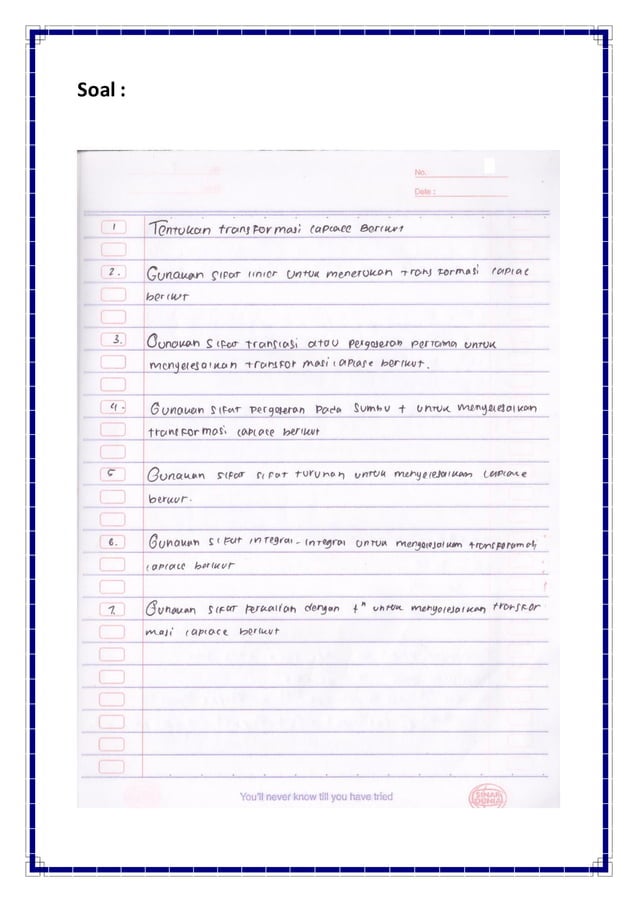 Soal :
No.
Date :
1 Tentukan transformasi laplace Berikut
2. Gunakan sifat linier untuk menentukan transformasi laplac
berikut
3. Gunakan sifat translasi atau pergeseran pertama untuk
menyelesaikan transformasi laplase berikut.
4. Gunakan sifat pergeseran pada sumbu t untuk menyelesaikan
transformasi laplace berikut
5 Gunakan sifat sifat turunan untuk menyelesaikan laplace
berikut.
6. Gunakan sifat integral-integral untuk menyelesaikan
laplace berikut
7. Gunakan sifat perkalian dengan tⁿ untuk menyelesaikan transfor
masi laplace berikut
You'll never know till you have tried
SINAR
DUNIA